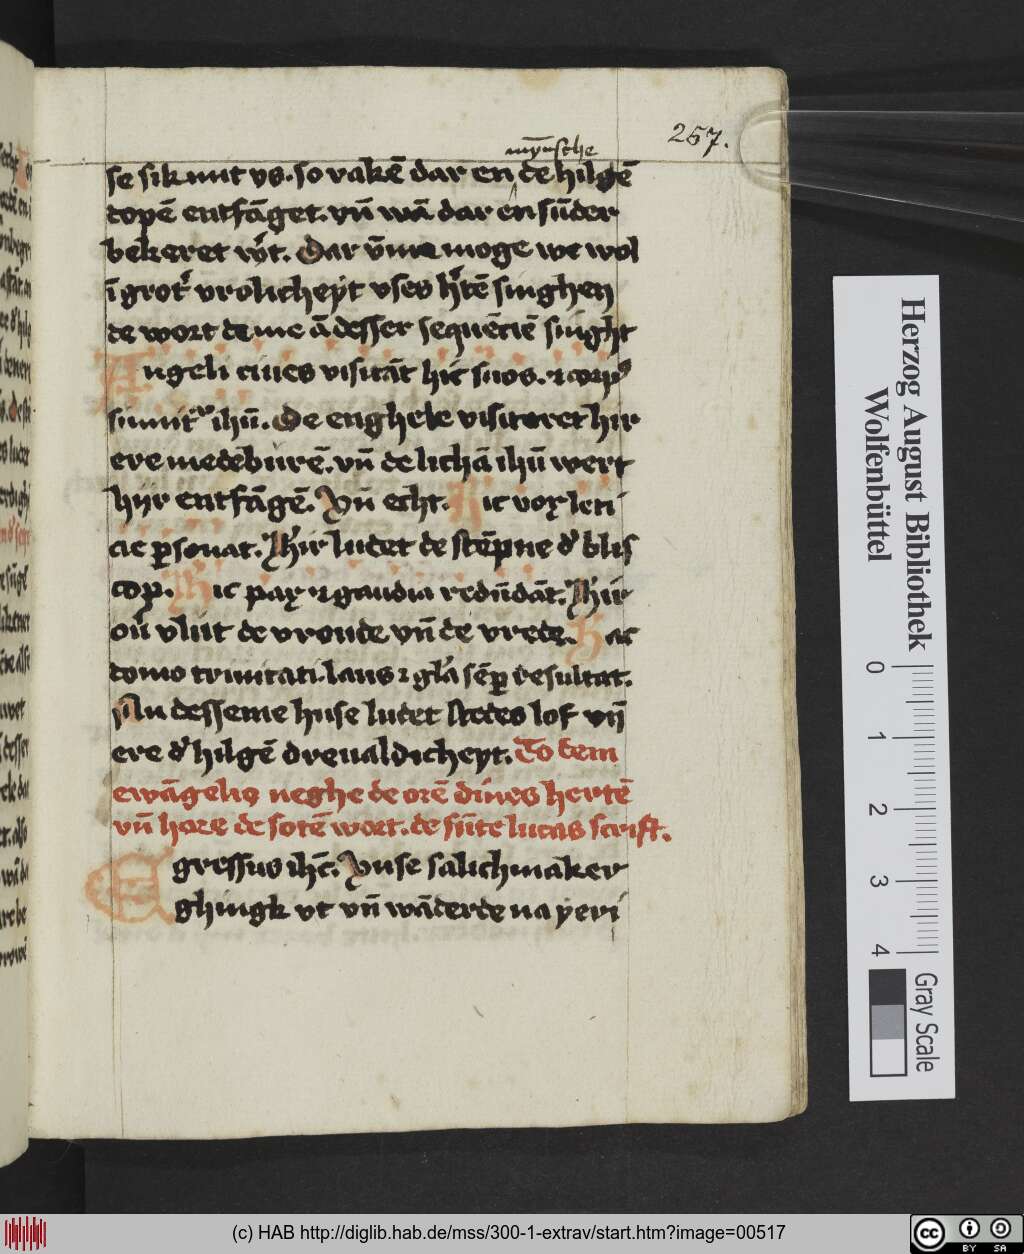 257.
mynsche
se sik mit vs. so vakē dar en de hilgē
dopē entfāget. vn̄ wā dar en sūder
bekeret wͤt. Dar v̄me moge we wol
ī grotͤ vrolicheyt vses hͤtē singhen
de wort de me ā desser sequēciē singht
Angeli ciues visitāt hic suos. ⁊ corpꝰ
sumūt ihū. De enghele visiteret hir
ere medebūrē. vn̄ de lichā ihū wert
hyr entfāgē. Vn̄ echt. Hic vox leti
cie ꝑsonat. Hir ludet de stēpne dͤ blis
cop. Hic pax ⁊ gaudia redūdāt. Hir
ouͤ vlut de vroude vn̄ de vrede. Hac
domo trinitati laus ⁊ glͣa sēꝑ resultat.
An desseme huse ludet stedes lof vn̄
ere dͤ hilgē dreualdicheyt. To dem
ewāgelio neghe de orē dines hertē
vn̄ hore de sotē wort. de sūte lucas scrift.
Egressus ihc̄. Vnse salichmaker
ghingk vt vn̄ wāderde na yeri
Herzog August Bibliothek
Wolfenbüttel
0 1 2 3 4
Gray Scale
(c) HAB http://diglib.hab.de/mss/300-1-extrav/start.htm?image=00517
cc BY SA